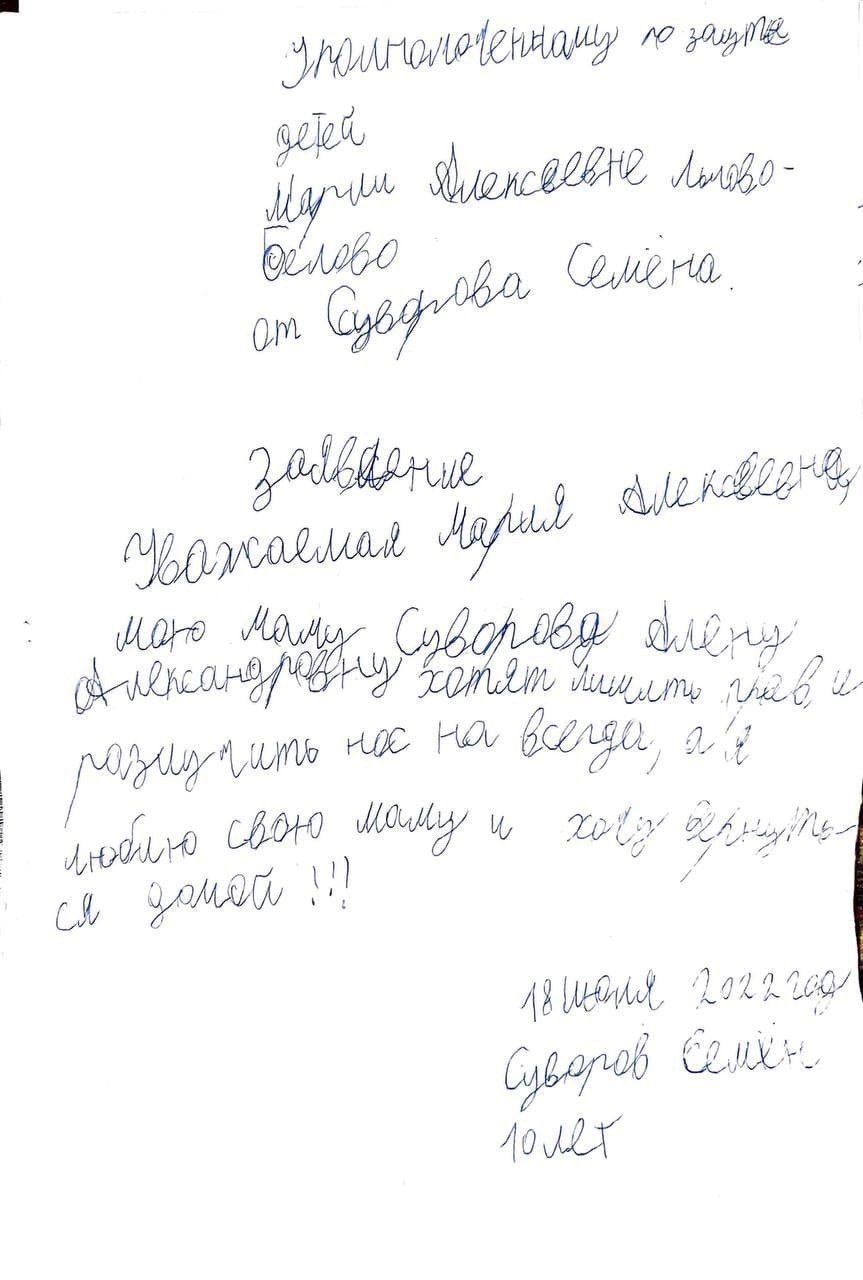 Уполномоченному по защите
детей
Марии Алексеевне Львово-
Белово
от Суворова Семёна.
Заявление
Уважаемая Мария Алексеевна,
маю маму Суворову Алену
Александровну хотят лишить прав, и
разлучить нас на всегда, а я
люблю свою маму и хочу вернуть-
ся домой!!!
18 июля 2022 год
Суворов Семён
10 лет